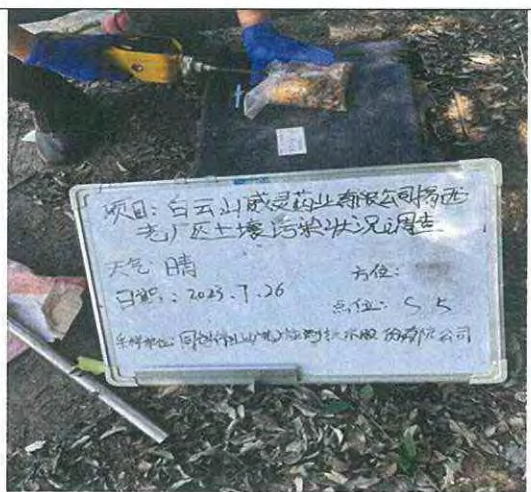 项目: 白云山威灵药业有限公司揭西
老厂区土壤污染状况调查
天气: 晴
方位:
日期: 2023.7.26
点位: S5
采样单位: 同创伟业(广东)检测技术股份有限公司